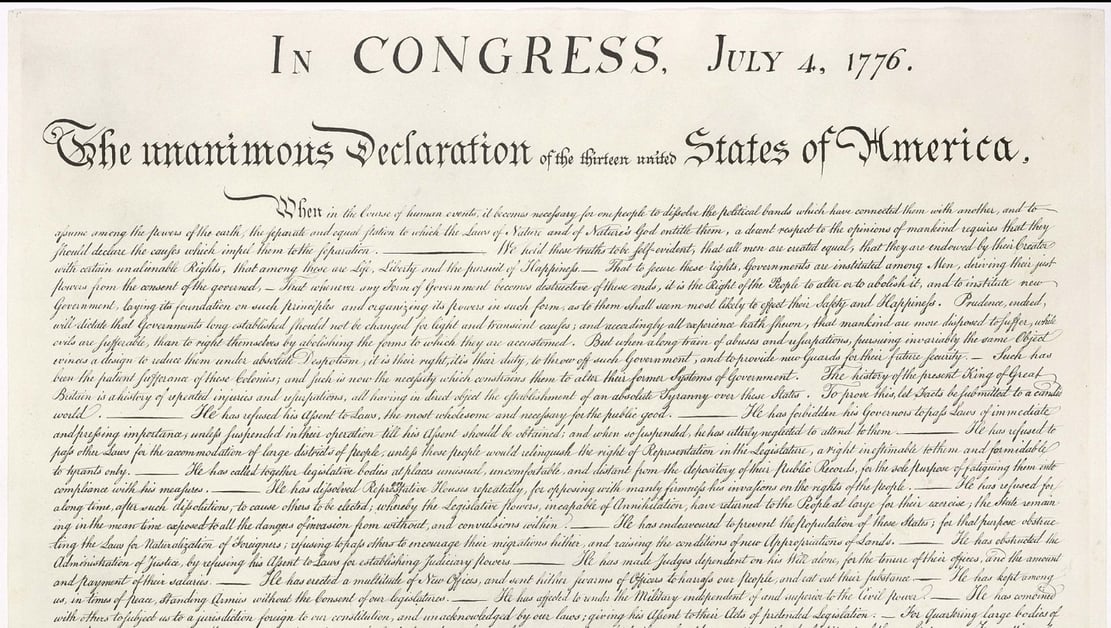 In CONGRESS, July 4, 1776.
The unanimous Declaration of the thirteen united States of America,
When in the Course of human events, it becomes necessary for one people to dissolve the political bands which have connected them with another, and to
assume among the powers of the earth, the separate and equal station to which the Laws of Nature and of Nature's God entitle them, a decent respect to the opinions of mankind requires that they
should declare the causes which impel them to the separation. ——— We hold these truths to be self-evident, that all men are created equal, that they are endowed by their Creator
with certain unalienable Rights, that among these are Life, Liberty and the pursuit of Happiness.— That to secure these rights, Governments are instituted among Men, deriving their just
powers from the consent of the governed, — That whenever any Form of Government becomes destructive of these ends, it is the Right of the People to alter or to abolish it, and to institute new
Government, laying its foundation on such principles and organizing its powers in such form, as to them shall seem most likely to effect their Safety and Happiness. Prudence, indeed,
will dictate that Governments long established should not be changed for light and transient causes; and accordingly all experience hath shewn, that mankind are more disposed to suffer, while
evils are sufferable, than to right themselves by abolishing the forms to which they are accustomed. But when a long train of abuses and usurpations, pursuing invariably the same Object
evinces a design to reduce them under absolute Despotism, it is their right, it is their duty, to throw off such Government, and to provide new Guards for their future security. — Such has
been the patient sufferance of these Colonies; and such is now the necessity which constrains them to alter their former Systems of Government. The history of the present King of Great
Britain is a history of repeated injuries and usurpations, all having in direct object the establishment of an absolute Tyranny over these States. To prove this, let Facts be submitted to a candid
world. ——— He has refused his Assent to Laws, the most wholesome and necessary for the public good. ——— He has forbidden his Governors to pass Laws of immediate
and pressing importance, unless suspended in their operation till his Assent should be obtained; and when so suspended, he has utterly neglected to attend to them. ——— He has refused to
pass other Laws for the accommodation of large districts of people, unless those people would relinquish the right of Representation in the Legislature, a right inestimable to them and formidable
to tyrants only. ——— He has called together legislative bodies at places unusual, uncomfortable, and distant from the depository of their Public Records, for the sole purpose of fatiguing them into
compliance with his measures. ——— He has dissolved Representative Houses repeatedly, for opposing with manly firmness his invasions on the rights of the people. ——— He has refused for
a long time, after such dissolutions, to cause others to be elected; whereby the Legislative powers, incapable of Annihilation, have returned to the People at large for their exercise; the State remain
ing in the mean time exposed to all the dangers of invasion from without, and convulsions within. ——— He has endeavoured to prevent the population of these States; for that purpose obstruc
ting the Laws for Naturalization of Foreigners; refusing to pass others to encourage their migrations hither, and raising the conditions of new Appropriations of Lands. ——— He has obstructed the
Administration of Justice, by refusing his Assent to Laws for establishing Judiciary powers. ——— He has made Judges dependent on his Will alone, for the tenure of their offices, and the amount
and payment of their salaries. ——— He has erected a multitude of New Offices, and sent hither swarms of Officers to harrass our people, and eat out their substance. — He has kept among
us, in times of peace, Standing Armies without the Consent of our legislatures. ——— He has affected to render the Military independent of and superior to the Civil power. — He has combined
with others to subject us to a jurisdiction foreign to our constitution, and unacknowledged by our laws; giving his Assent to their Acts of pretended Legislation: — For Quartering large bodies of